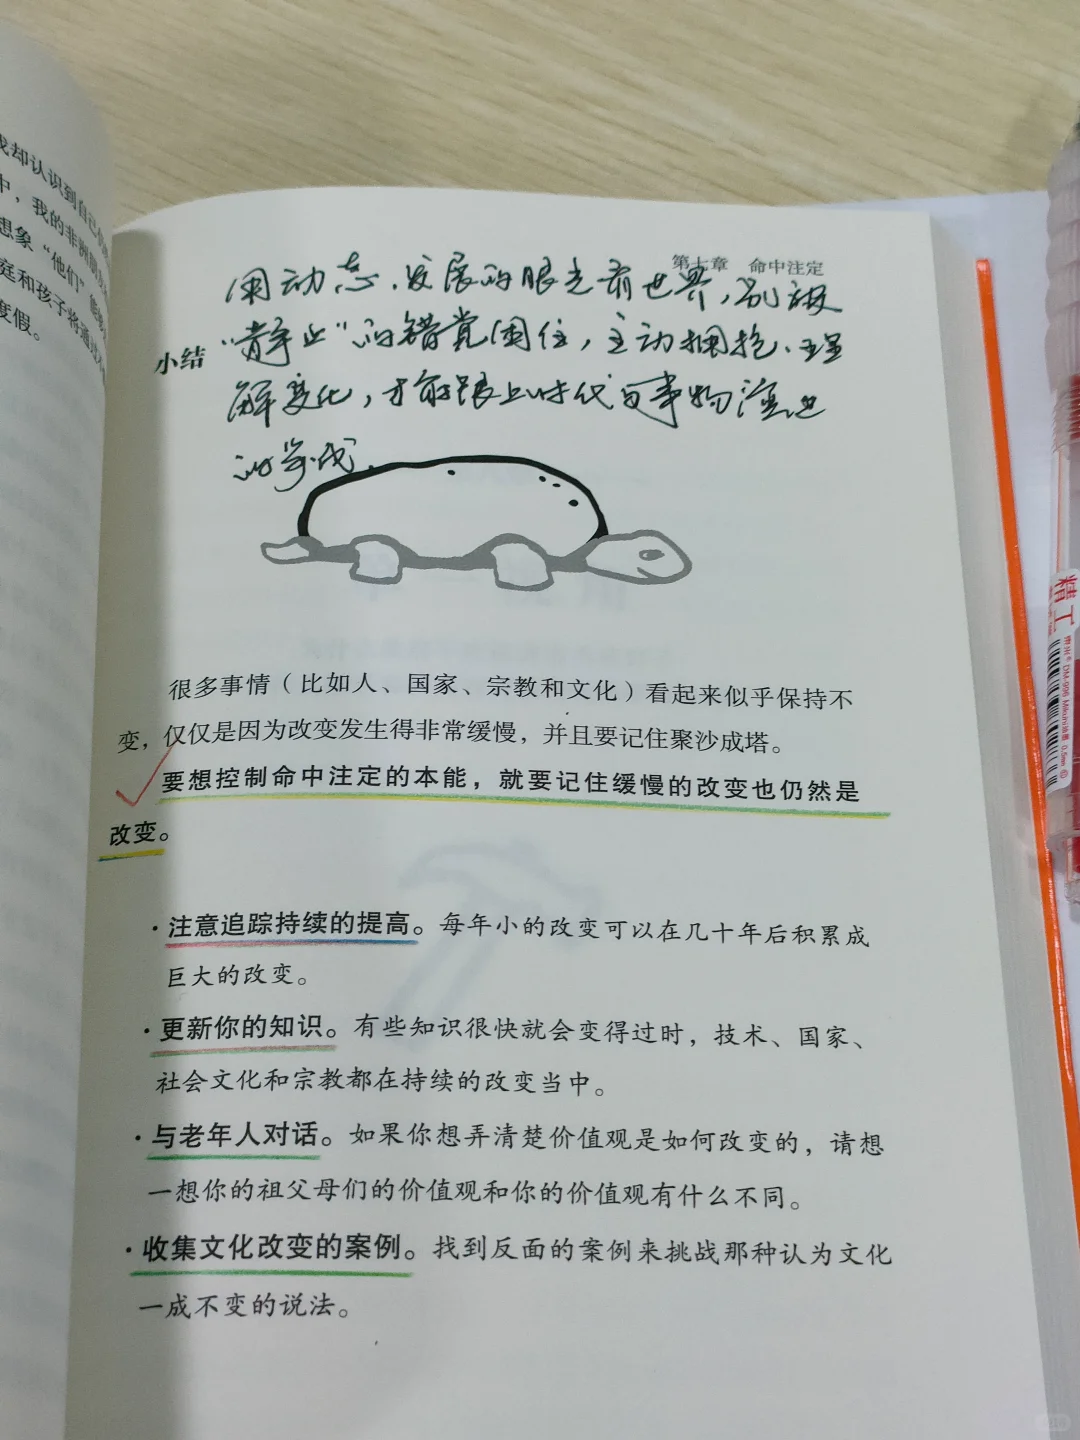 我却认识到自己
中，我的非洲朋友
想象“他们”能够
庭和孩子将通过
度假。
第七章 命中注定
用动态、发展的眼光看世界，别被
小结
“静止”的错觉困住，主动拥抱、理
解变化，才能跟上时代与事物演进
的步伐。
很多事情（比如人、国家、宗教和文化）看起来似乎保持不
变，仅仅是因为改变发生得非常缓慢，并且要记住聚沙成塔。
要想控制命中注定的本能，就要记住缓慢的改变也仍然是
改变。
·注意追踪持续的提高。每年小的改变可以在几十年后积累成
巨大的改变。
·更新你的知识。有些知识很快就会变得过时，技术、国家、
社会文化和宗教都在持续的改变当中。
·与老年人对话。如果你想弄清楚价值观是如何改变的，请想
一想你的祖父母们的价值观和你的价值观有什么不同。
·收集文化改变的案例。找到反面的案例来挑战那种认为文化
一成不变的说法。
精工